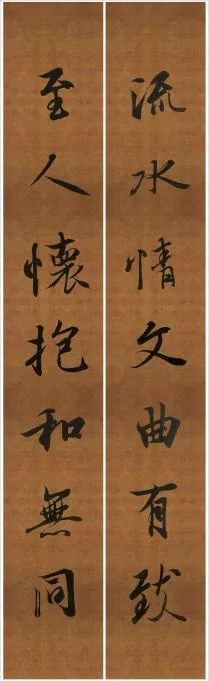 流水情文曲有致
至人懷抱和無同